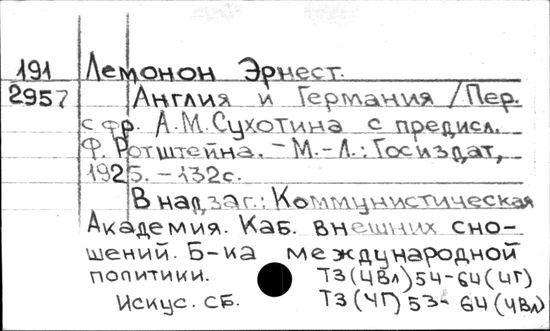 191 Лемонон Эрнест.
2957 Англия и Германия / Пер.
с фр. А.М.Сухотина с предисл.
Ф. Ротштейна. - М.-Л.: Госиздат,
1925. - 132с.
В надзаг.: Коммунистическая
Академия. Каб. внешних сно-
шений. Б-ка международной
политики. ТЗ(4Вл)54-64(4Г)
Искус. сб. ТЗ(4Г)53-64(4Вл)